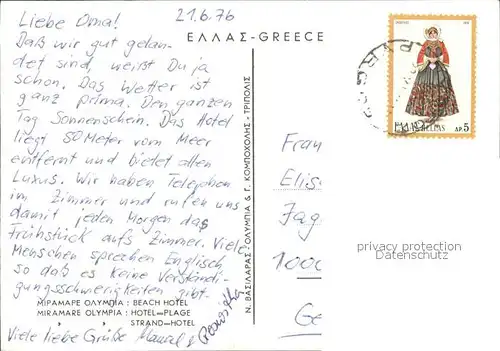 21.6.76
Liebe Oma!
Daß wir gut gelan-
det sind, weißt Du ja
schon. Das Wetter ist
ganz prima. Den ganzen
Tag Sonnenschein. Das Hotel
liegt 50 Meter vom Meer
entfernt und bietet allen
Luxus. Wir haben Telephon
im Zimmer und rufen uns
damit jeden Morgen das
Frühstück aufs Zimmer. Viele
Menschen sprechen Englisch
so daß es keine Verständi-
gungsschwierigkeiten gibt.
ΜΙΡΑΜΑΡΕ ΟΛΥΜΠΙΑ : BEACH HOTEL
MIRAMARE OLYMPIA : HOTEL-PLAGE
" " STRAND-HOTEL
Viele liebe Grüße
ΕΛΛΑΣ-GREECE
Ν. ΒΑΣΙΛΑΡΑΣ-ΟΛΥΜΠΙΑ & Γ. ΚΟΜΠΟΧΟΛΗΣ-ΤΡΙΠΟΛΙΣ
HELLAS
ΔΡ. 5
Frau
Elis
Jag
1000
Ge
privacy protection
Datenschutz